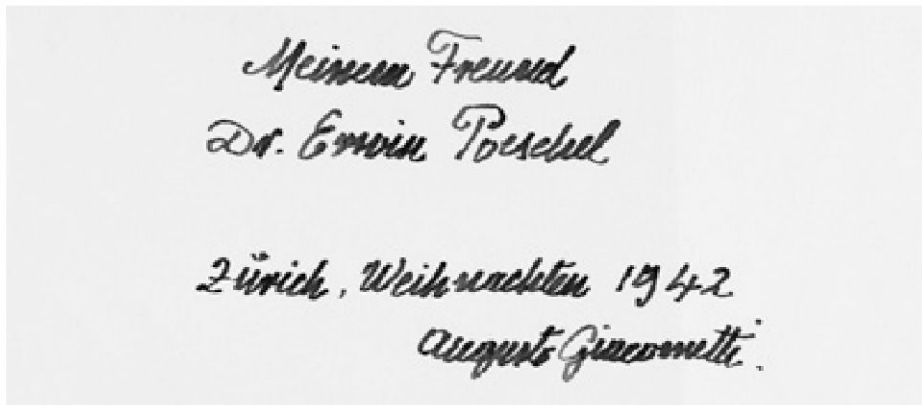 Meinem Freund
Dr. Erwin Poeschel
Zürich, Weihnachten 1942
Augusto Giacometti.